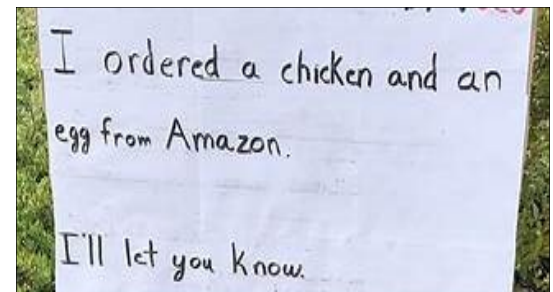 I ordered a chicken and an
egg from Amazon.
I'll let you know.